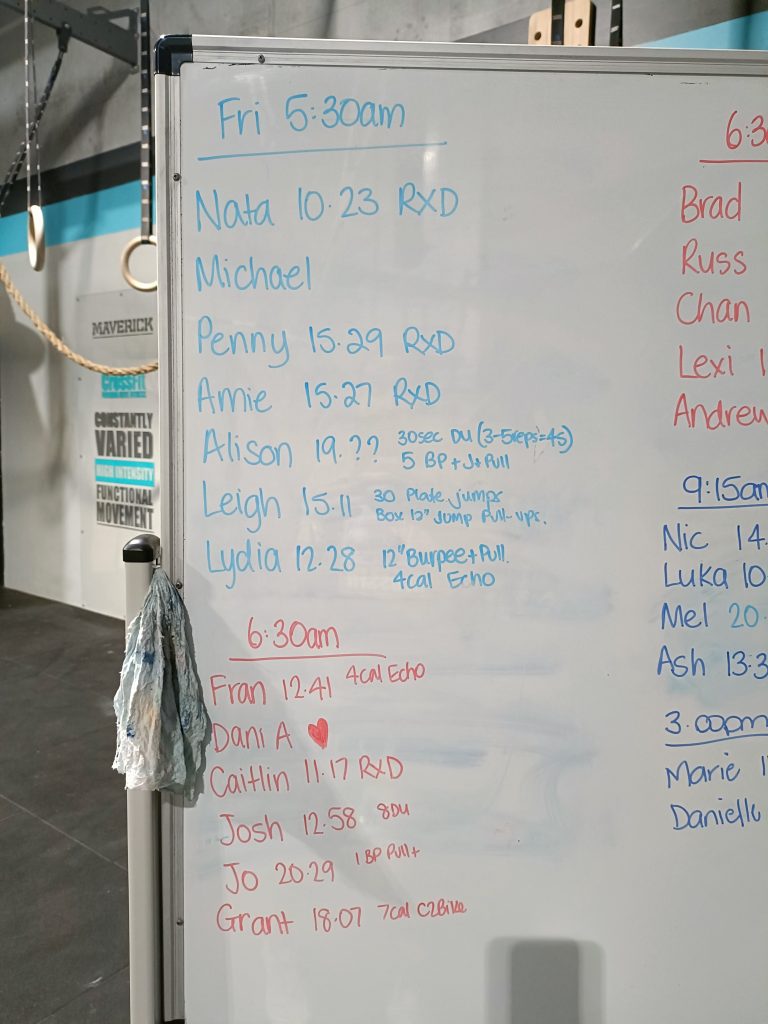 Fri 5:30am
Nata 10.23 RXD
Michael
Penny 15.29 RXD
Amie 15.27 RXD
Alison 19.?? 30sec DU (3-5reps=45)
5 BP + J. Pull
Leigh 15.11 30 Plate jumps
Box 12" Jump Pull-ups.
Lydia 12.28 12" Burpee + Pull.
4cal Echo
6:30am
Fran 12.41 4cal Echo
Dani A ♥
Caitlin 11.17 RXD
Josh 12.58 8DU
Jo 20.29 1 BP Pull+
Grant 18.07 7cal C2Bike
6:3
Brad
Russ
Chan
Lexi 1
Andrew
9:15am
Nic 14.
Luka 10
Mel 20.
Ash 13.3
3.00pm
Marie 1
Danielle
MAVERICK
CROSSFIT
CONSTANTLY
VARIED
HIGH INTENSITY
FUNCTIONAL
MOVEMENT